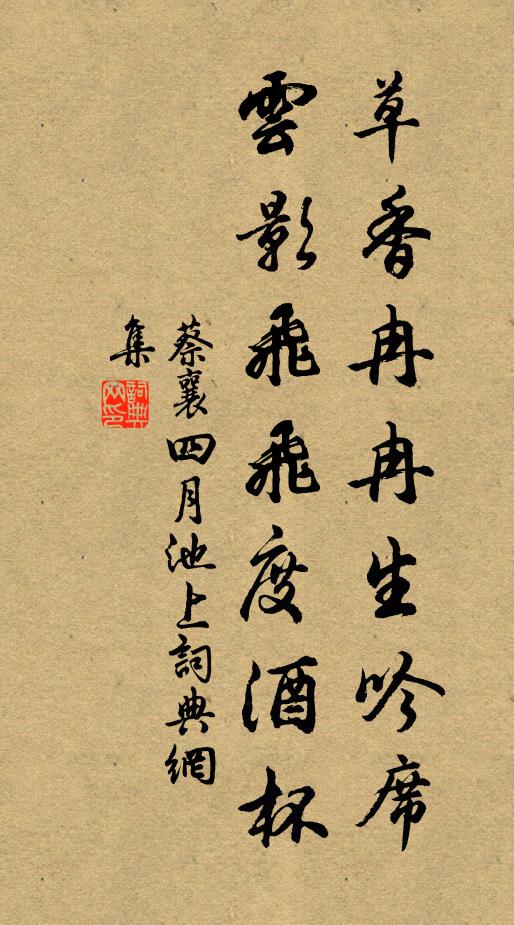 草香冉冉生吟席
雲影飛飛度酒杯
蔡襄四月池上詞典網
集
詞典網印